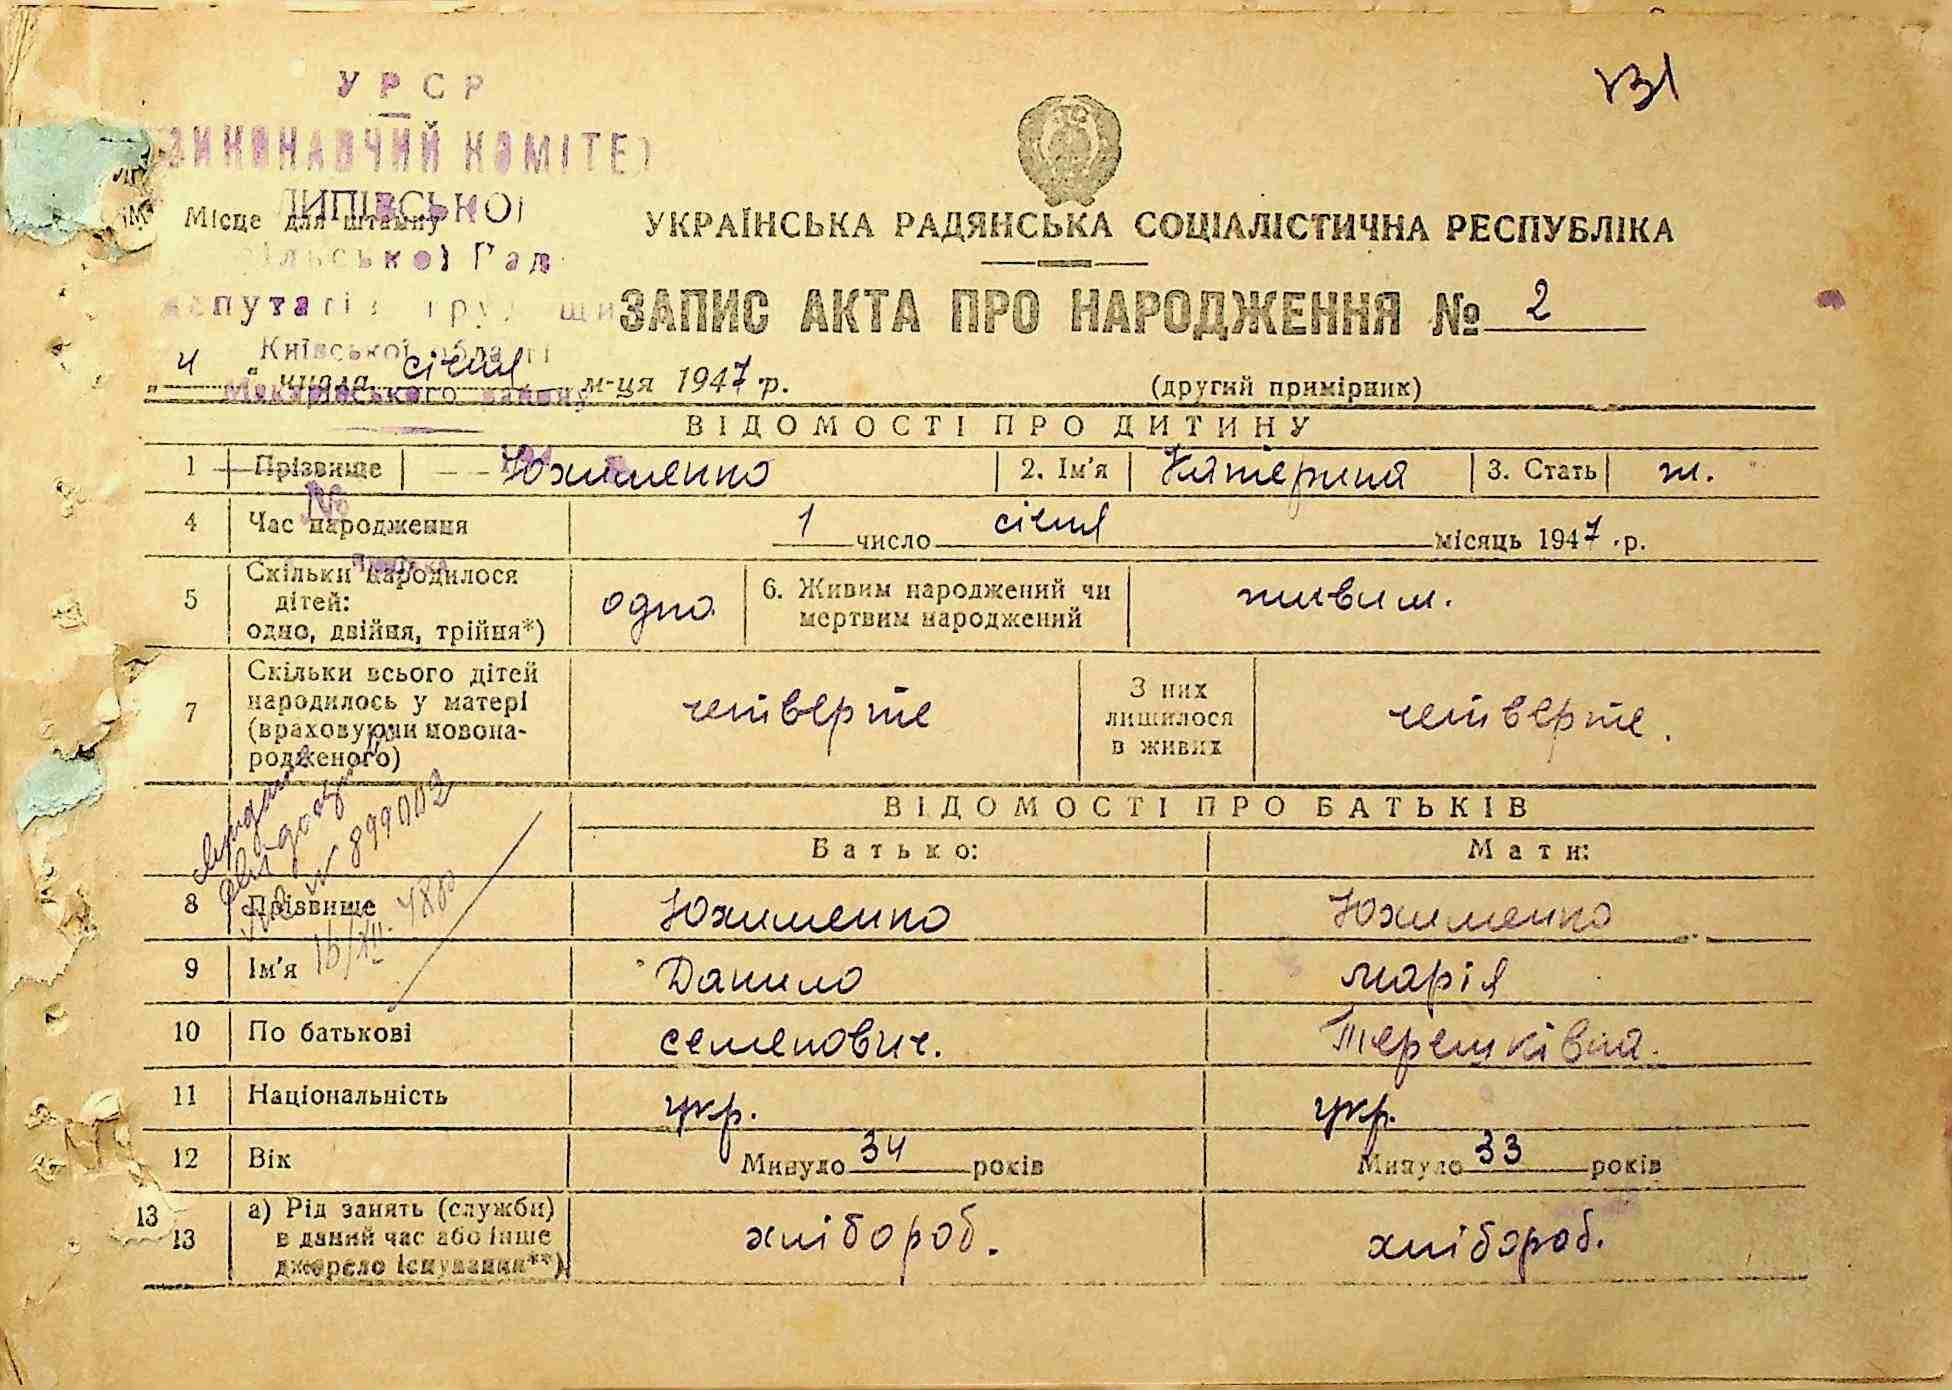 131
УРСР
ВИКОНАВЧИЙ КОМІТЕТ
ЛИПІВСЬКОЇ
Місце для штампу
УКРАЇНСЬКА РАДЯНСЬКА СОЦІАЛІСТИЧНА РЕСПУБЛІКА
сільської Рад
депутатів трудящи
ЗАПИС АКТА ПРО НАРОДЖЕННЯ № 2
Київської області
„4“ числа січня м-ця 1947 р.
(другий примірник)
Макарівського району
ВІДОМОСТІ ПРО ДИТИНУ
1 Прізвище Юхименко 2. Ім'я Катерина 3. Стать ж.
№
4 Час народження 1 число січня місяць 1947 р.
5 Скільки народилося дітей: одно, двійня, трійня*) одно 6. Живим народжений чи мертвим народжений живим.
7 Скільки всього дітей народилось у матері (враховуючи новонародженого) четверте З них лишилося в живих четверте.
ВІДОМОСТІ ПРО БАТЬКІВ
Батько: Мати:
№ 899002
16/XII
8 Прізвище Юхименко Юхименко
9 Ім'я Данило Марія
10 По батькові Семенович. Терешківна.
11 Національність укр. укр.
12 Вік Минуло 34 років Минуло 33 років
13
13 а) Рід занять (служби) в даний час або інше джерело існування**) хлібороб. хлібороб.